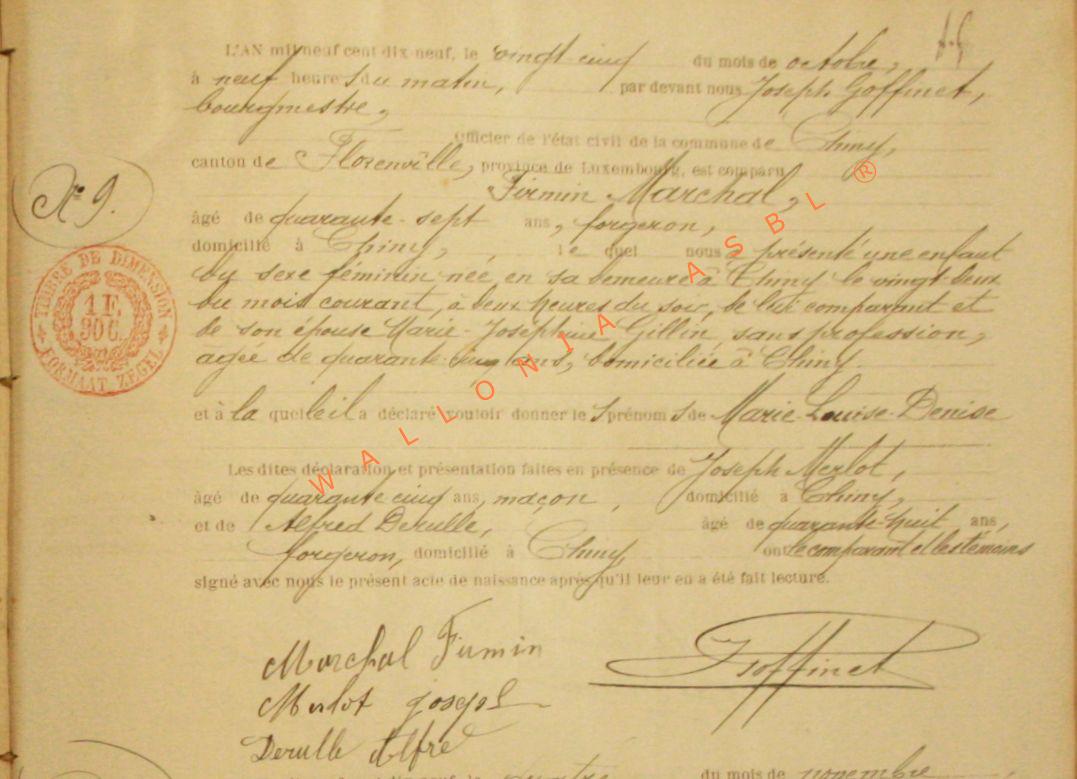 L'AN mil neuf cent dix neuf, le vingt cinq du mois de octobre,
à neuf heures du matin, par devant nous Joseph Goffinet,
bourgmestre,
officier de l'état civil de la commune de Chiny,
canton de Florenville, province de Luxembourg, est comparu
Firmin Marchal,
N° 9.
âgé de quarante-sept ans, forgeron,
domicilié à Chiny, le quel nous a présenté une enfant
du sexe féminin née, en sa demeure à Chiny le vingt-deux
du mois courant, à deux heures du soir, de lui comparant et
de son épouse Marie-Joséphine Gillin, sans profession,
agée de quarante-cinq ans, domiciliée à Chiny.
TIMBRE DE DIMENSION
1 F.
90 C.
FORMAAT ZEGEL
et à la quelle il a déclaré vouloir donner les prénoms de Marie-Louise-Denise
Les dites déclaration et présentation faites en présence de Joseph Merlot,
âgé de quarante cinq ans, maçon, domicilié à Chiny,
et de Alfred Derulle, âgé de quarante-huit ans,
forgeron, domicilié à Chiny, ont le comparant et les témoins
signé avec nous le présent acte de naissance après qu'il leur en a été fait lecture.
Marchal Firmin
J Goffinet
Merlot Joseph
Derulle Alfred
du mois de novembre
WALLONIA ASBL ®